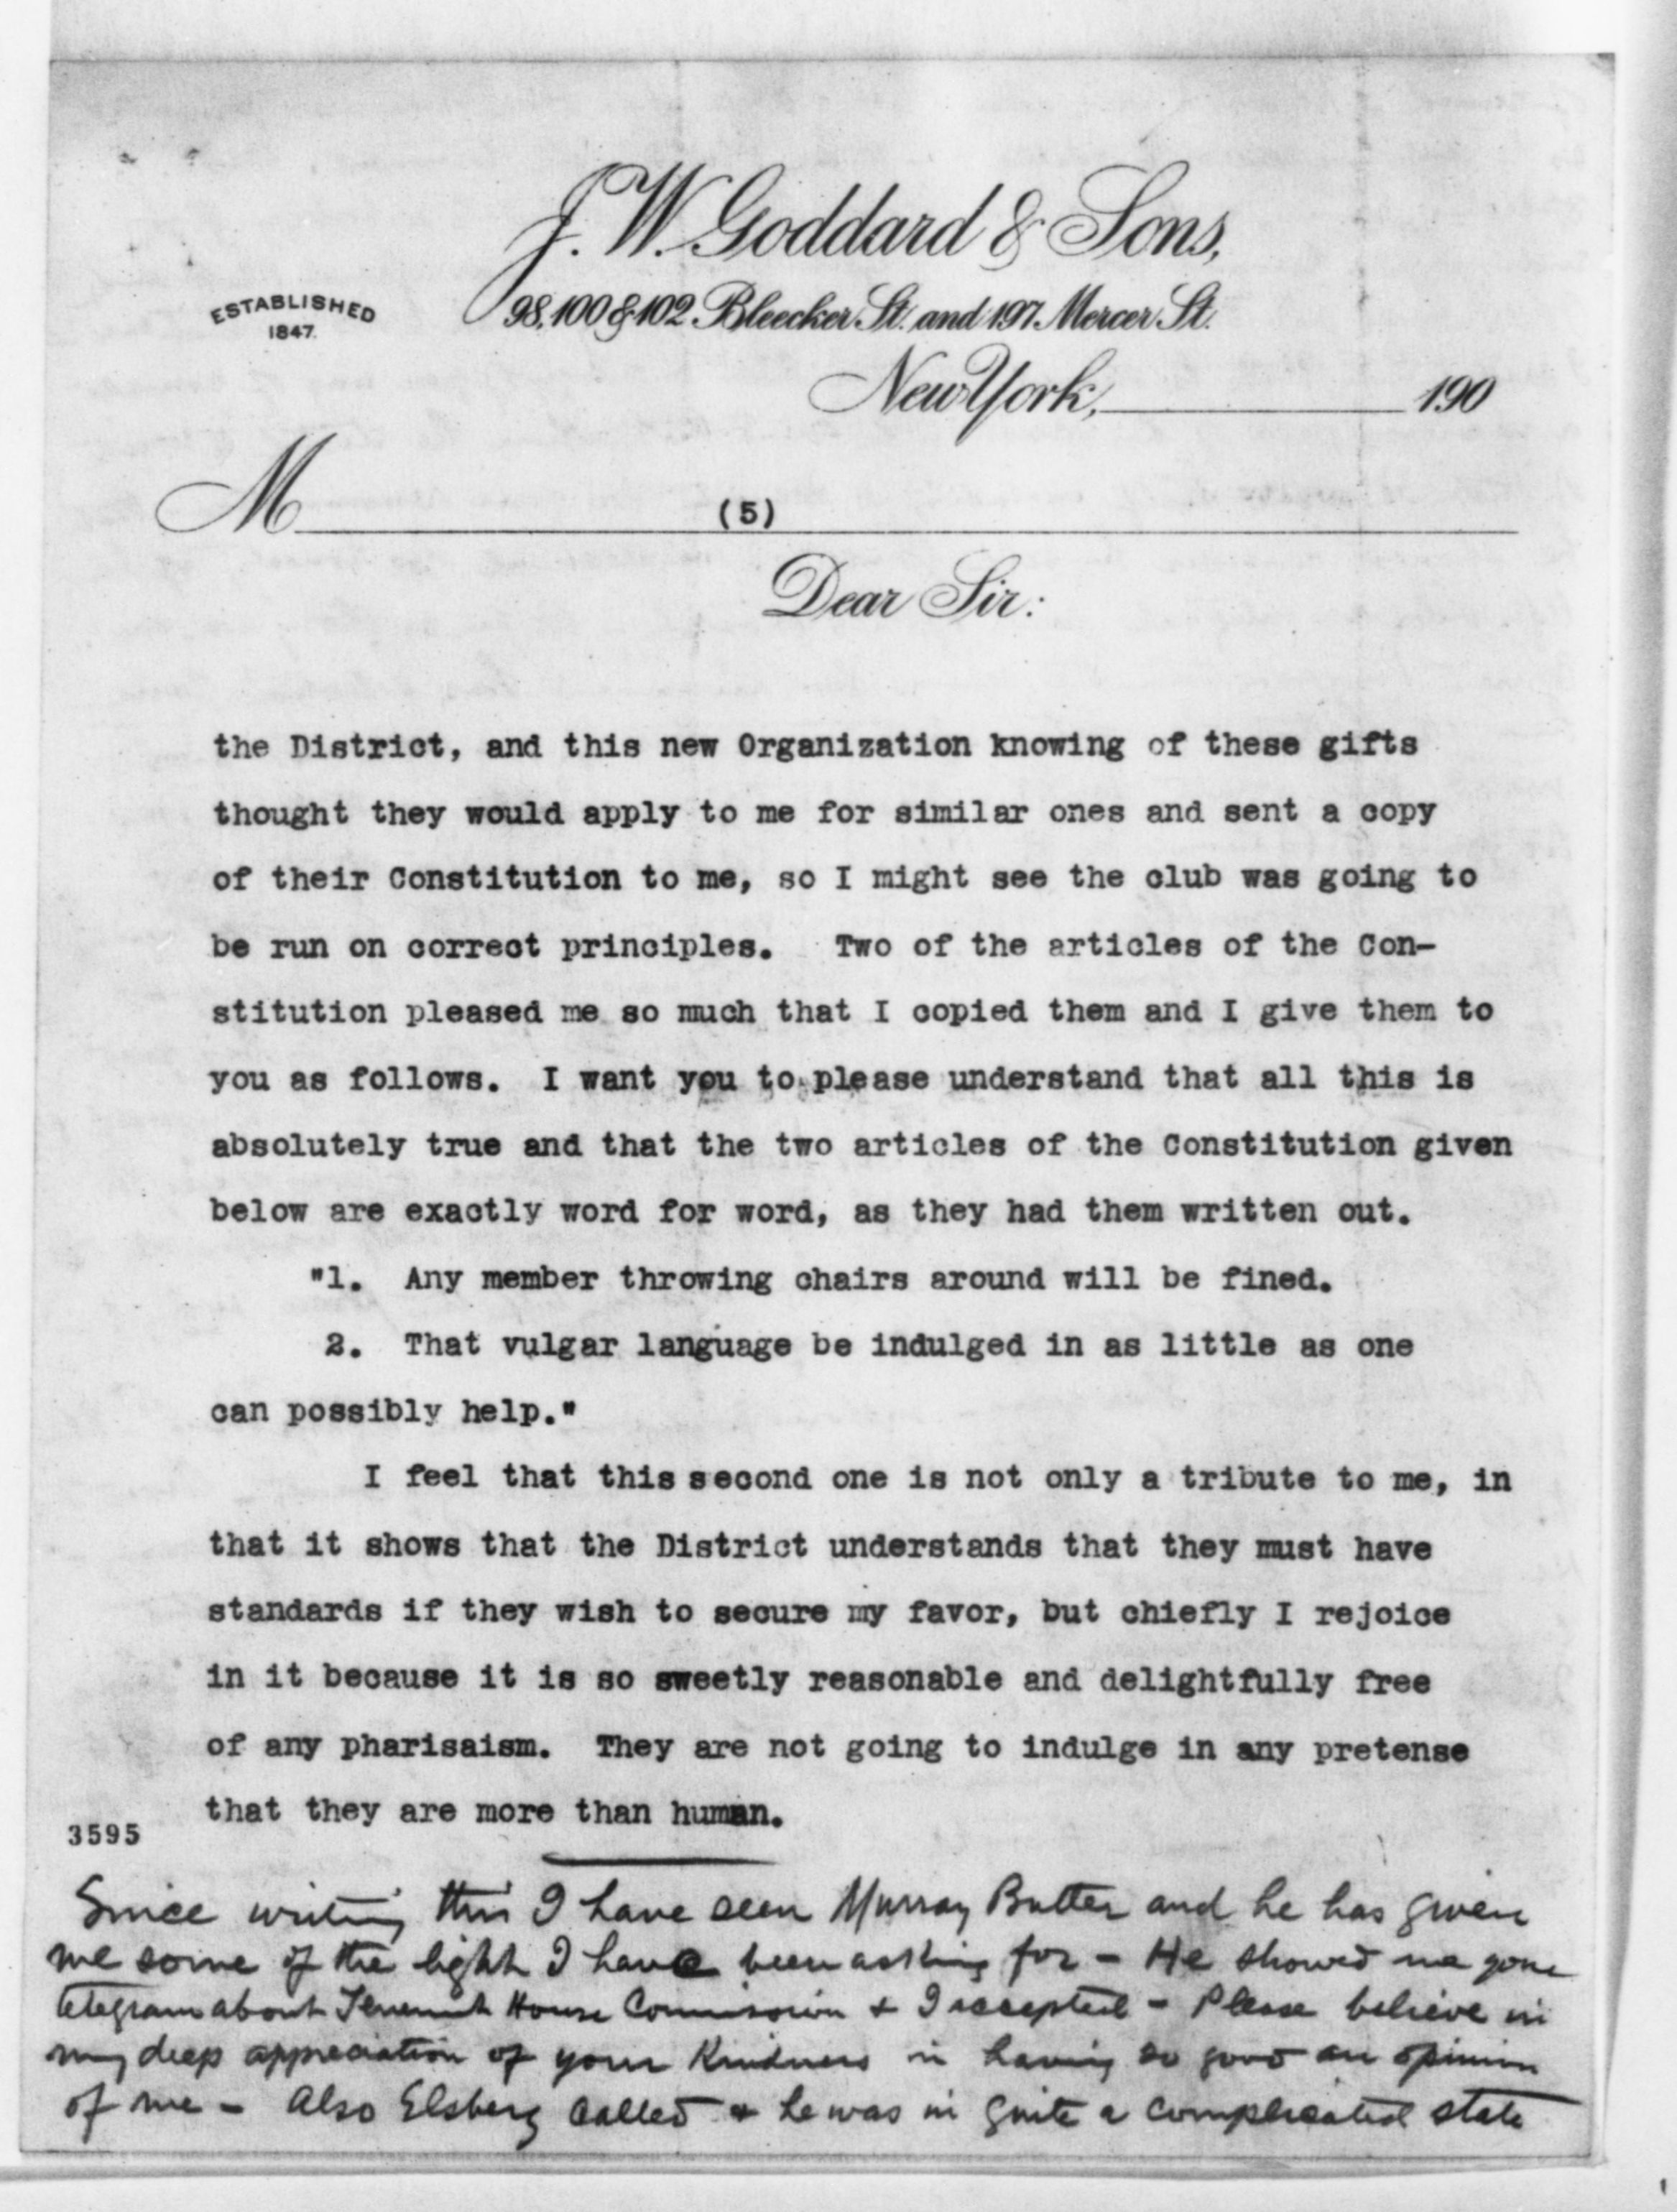 J. W. Goddard & Sons,
ESTABLISHED
1847.
98, 100 & 102 Bleecker St. and 197 Mercer St.
New York, 190
M (5)
Dear Sir:
the District, and this new Organization knowing of these gifts
thought they would apply to me for similar ones and sent a copy
of their Constitution to me, so I might see the club was going to
be run on correct principles. Two of the articles of the Con-
stitution pleased me so much that I copied them and I give them to
you as follows. I want you to please understand that all this is
absolutely true and that the two articles of the Constitution given
below are exactly word for word, as they had them written out.
"1. Any member throwing chairs around will be fined.
2. That vulgar language be indulged in as little as one
can possibly help."
I feel that this second one is not only a tribute to me, in
that it shows that the District understands that they must have
standards if they wish to secure my favor, but chiefly I rejoice
in it because it is so sweetly reasonable and delightfully free
of any pharisaism. They are not going to indulge in any pretense
that they are more than human.
3595
Since writing this I have seen Murray Butler and he has given
me some of the light I have been asking for - He showed me your
telegram about Tenement House Commission & I accepted - Please believe in
my deep appreciation of your kindness in having so good an opinion
of me - Also Elsberg called & he was in quite a complicated state